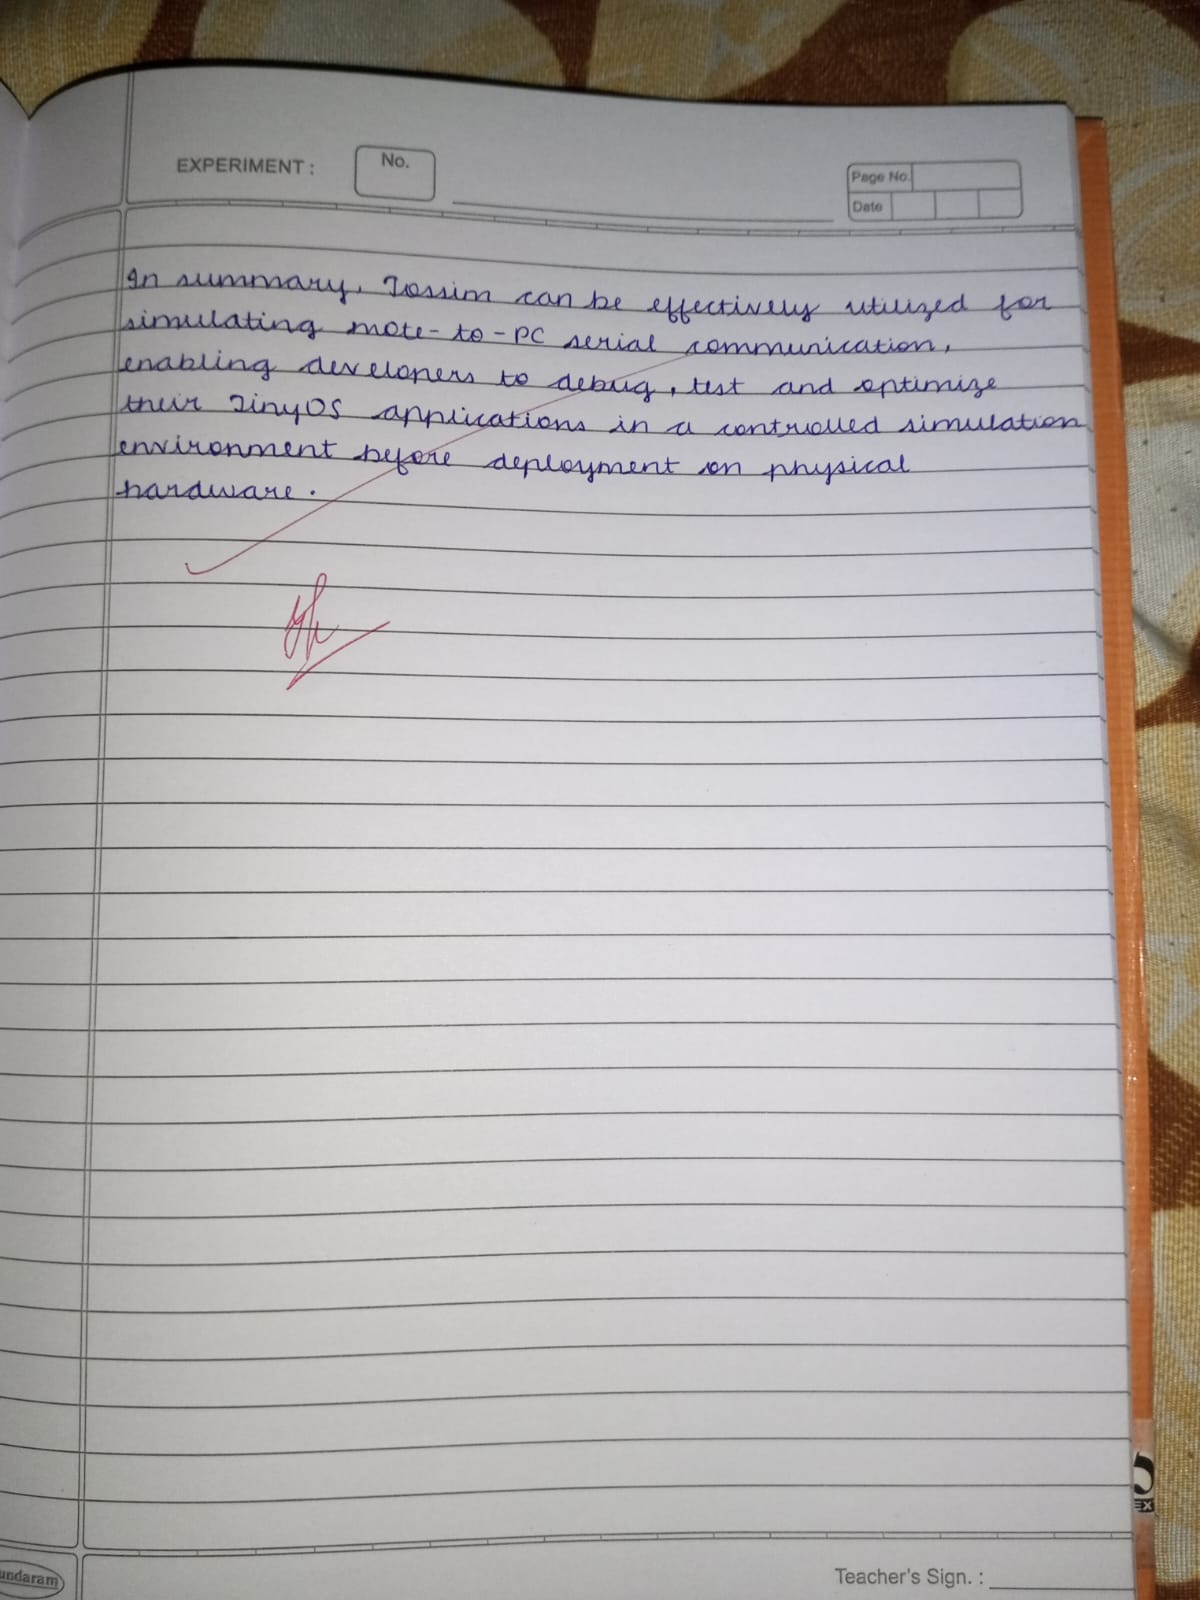 EXPERIMENT :
No.
Page No.
Date
In summary, Tossim can be effectively utilized for
simulating mote-to-PC serial communication,
enabling developers to debug, test and optimize
their TinyOS applications in a controlled simulation
environment before deployment on physical
hardware.
undaram
EX
Teacher's Sign. :